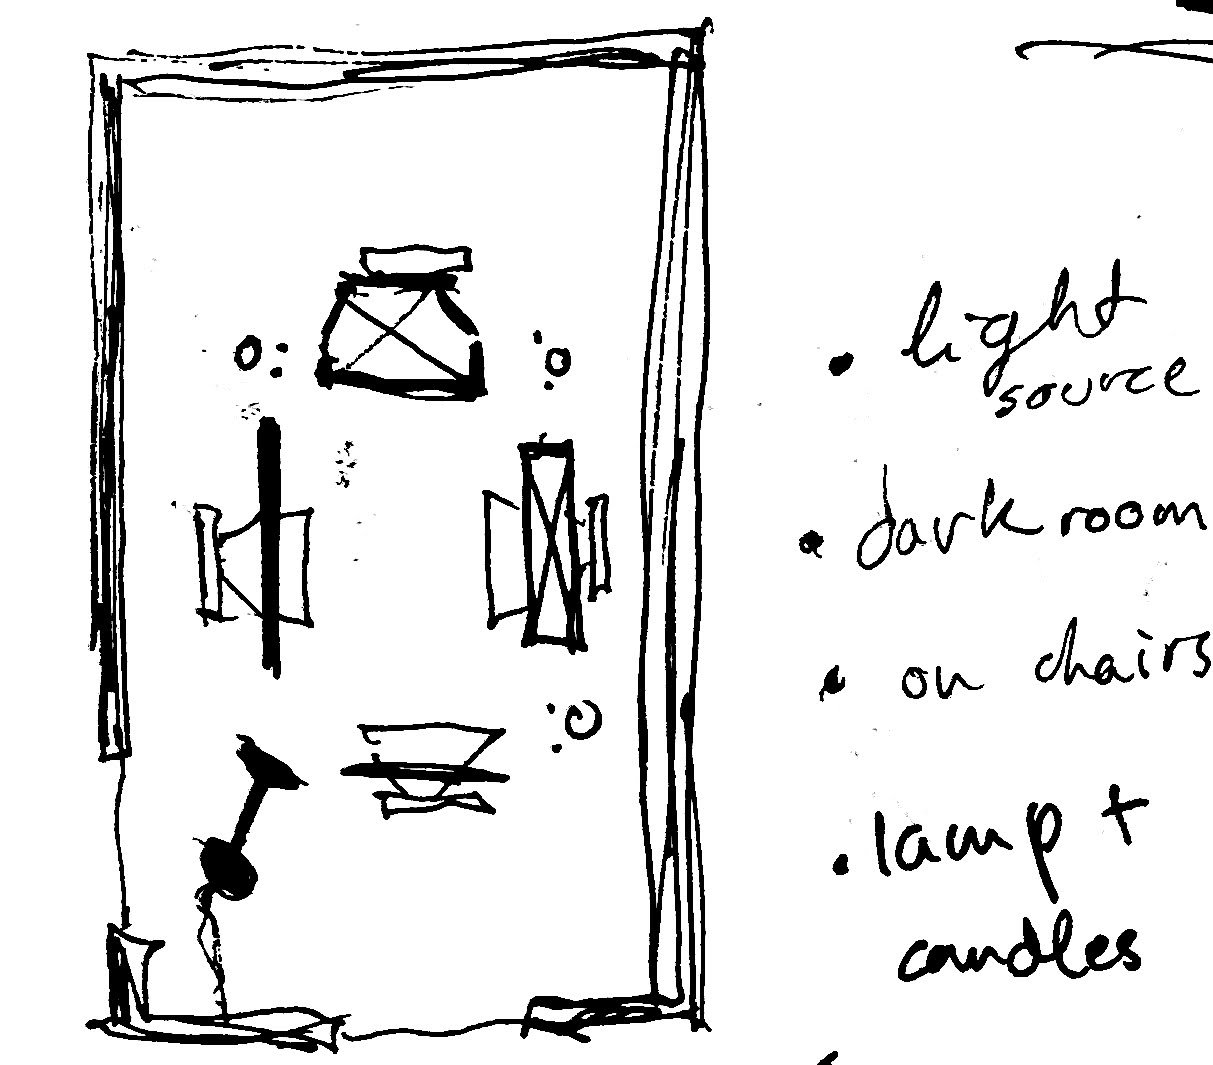 • light
source
• darkroom
• on chairs
• lamp +
candles